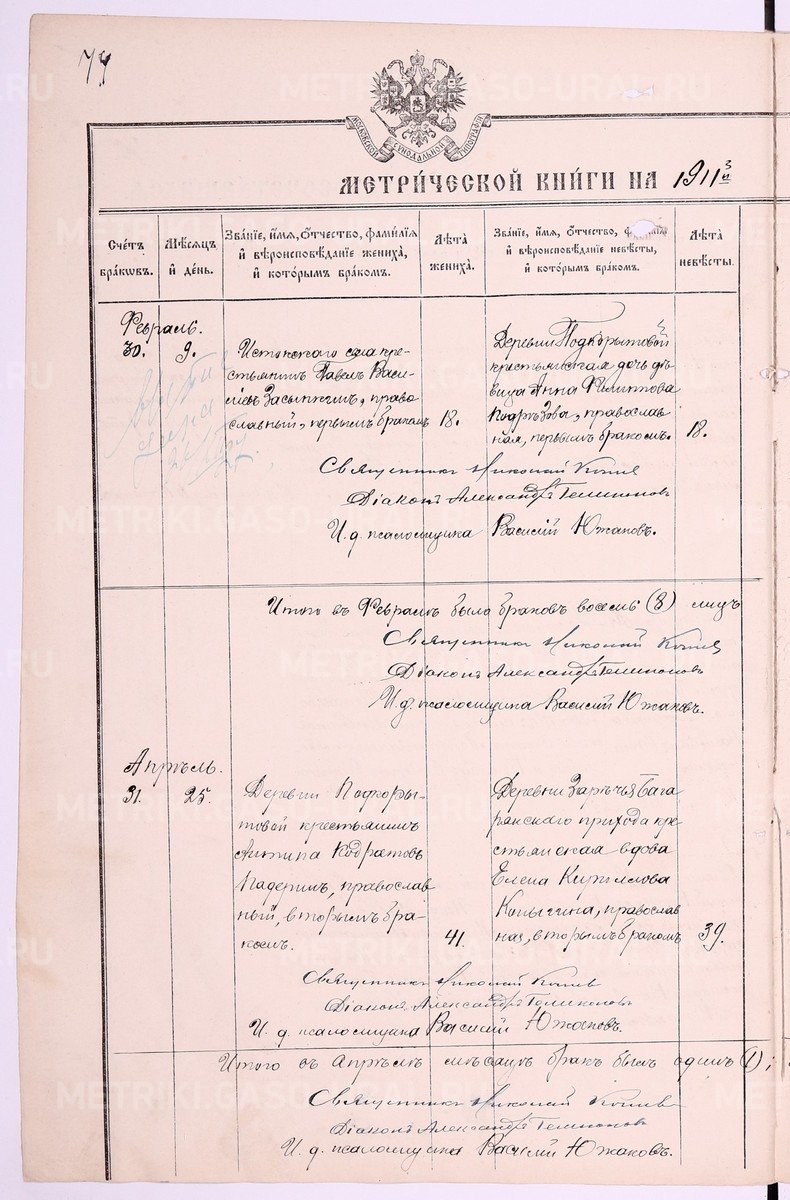 74
МОСКОВСКОЙ СѴНОДАЛЬНОЙ ТИПОГРАФІИ
МЕТРИ́ЧЕСКОЙ КНИ́ГИ НА 1911й
Сче́тъ бра́кѡвъ.
Мѣ́сяцъ и҆ де́нь.
Зва́нїе, и҆́мя, ѻ҆́тчество, фами́лїя и҆ вѣроисповѣ́данїе жениха̀, и҆ кото́рымъ бра́комъ.
Лѣ́та жениха̀.
Зва́нїе, и҆́мя, ѻ҆́тчество, фами́лїя и҆ вѣроисповѣ́данїе невѣ́сты, и҆ кото́рымъ бра́комъ.
Лѣ́та невѣ́сты.
Февраль.
30.
9.
Истокскаго села кре-
стьянинъ Павелъ Васи-
льевъ Засыпкинъ, право-
славный, первымъ бракомъ
18.
Деревни Подкорытовой
крестьянская дочь дѣ-
вица Анна Филиппова
Подрѣзова, православ-
ная, первымъ бракомъ.
18.
Священникъ Николай
Діаконъ Александръ
И. д. псаломщика Василій Южаковъ.
Итого въ Февралѣ было браковъ восемь (8) лицъ
Священникъ Николай
Діаконъ Александръ
И. д. псаломщика Василій Южаковъ.
Апрѣль.
31.
25.
Деревни Подкоры-
товой крестьянинъ
Антипа Кодратовъ
Падеринъ, православ
ный, вторымъ бра-
комъ.
41.
Деревни Зарѣчья Бага-
рякскаго прихода кре-
стьянская вдова
Елена Кириллова
Копыгина, православ
ная, вторымъ бракомъ
39.
Священникъ Николай
Діаконъ Александръ
И. д. псаломщика Василій Южаковъ.
Итого въ Апрѣлѣ мѣсяцѣ бракъ былъ одинъ (1);
Священникъ Николай
Діаконъ Александръ
И. д. псаломщика Василій Южаковъ.
METRIKI.GASO-URAL.RU